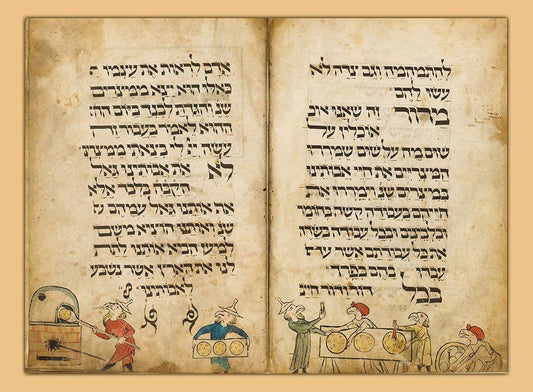 להתמהמה וגם צדה לא
עשו להם׃
מרור זה שאנו או
אוכלין על
שום מה על שום שמררו
המצריים את חיי אבותינו
במצרים שנ' וימררו את
חייהם בעבודה קשה בחומר
ובלבינים ובכל עבודה בשדה
את כל עבודתם אשר
עבדו בהם בפרך
בכל דור ודור חייב
אדם לראות את עצמו ה
כאלו הוא יצא ממצרים
שנ' והגדת לבנך ביום הה
ההוא לאמר בעבור זה
עשה יי לי בצאתי ממצרים
לא את אבותינו גאל
הקבה בלבד אלא
את אותנו גאל עמהם ש
שנ' ואותנו הוציא משם
למען הביא אותנו לתת
לנו את הארץ אשר נשבע
לאבותינו׃